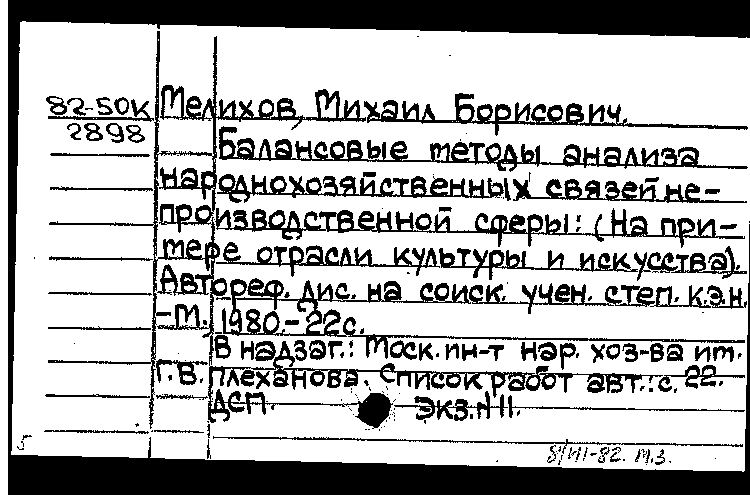 82-50К Мелихов, Михаил Борисович.
2898
Балансовые методы анализа
народнохозяйственных связей не-
производственной сферы: (На при-
мере отрасли культуры и искусства).
Автореф. дис. на соиск. учен. степ. к.э.н.
-М., 1980.-22с.
В надзаг.: Моск. ин-т нар. хоз-ва им.
Г.В. Плеханова. Список работ авт.: с. 22.
ДСП. Экз.N 11.
5 8/VII-82. М.З.